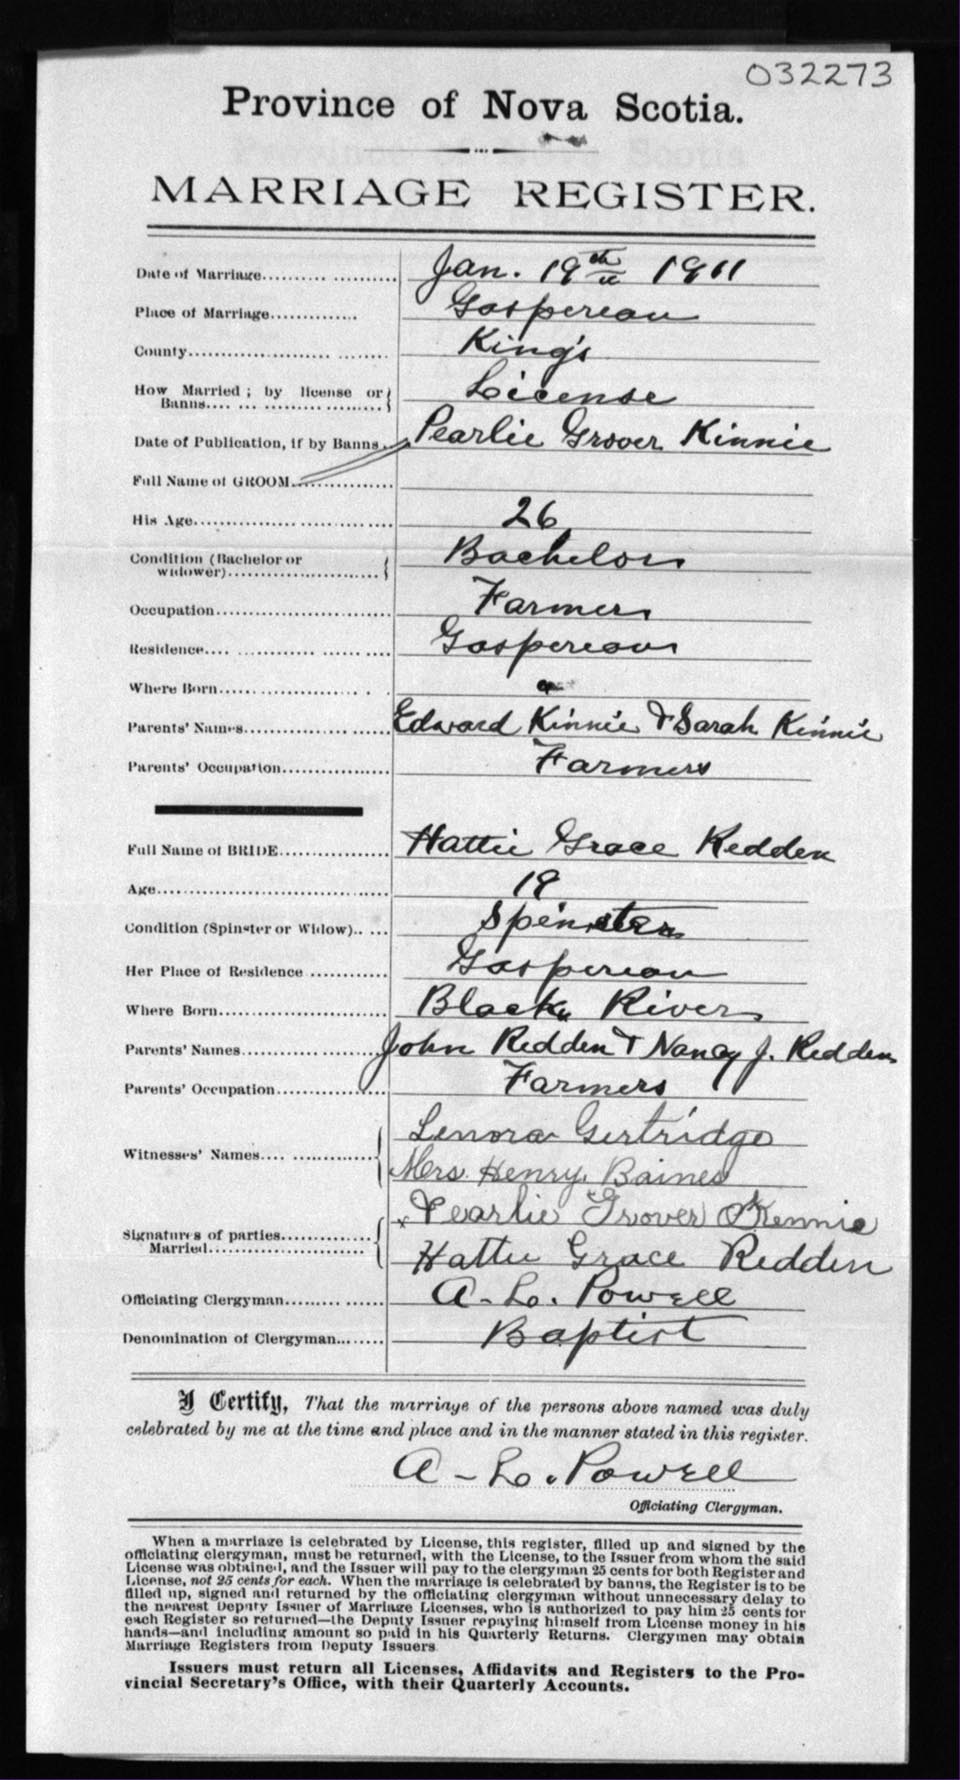 032273
Province of Nova Scotia.
MARRIAGE REGISTER.
Date of Marriage.................. Jan. 19th 1911
Place of Marriage............. Gaspereau
County.............................. King's
How Married ; by license or License
Banns....................................
Date of Publication, if by Banns.. Pearlie Grover Kinnie
Full Name of GROOM..................
His Age.............................. 26
Condition (Bachelor or Bachelor
widower)...........................
Occupation........................... Farmer
Residence........................... Gaspereau
Where Born...........................
Parents' Names...................... Edward Kinnie & Sarah Kinnie
Parents' Occupation............... Farmers
Full Name of BRIDE............... Hattie Grace Redden
Age.................................... 19
Condition (Spinster or Widow)..... Spinster
Her Place of Residence ............ Gaspereau
Where Born........................... Black River
Parents' Names...................... John Redden & Nancy J. Redden
Parents' Occupation............... Farmers
Lenora Gertridge
Witnesses' Names..................
Mrs. Henry Baines
x Pearlie Grover Kennie
Signatures of parties...............
Married...........................
Hattie Grace Redden
Officiating Clergyman............... A. L. Powell
Denomination of Clergyman......... Baptist
I Certify, That the marriage of the persons above named was duly
celebrated by me at the time and place and in the manner stated in this register.
A. L. Powell
Officiating Clergyman.
When a marriage is celebrated by License, this register, filled up and signed by the
officiating clergyman, must be returned, with the License, to the Issuer from whom the said
License was obtained, and the Issuer will pay to the clergyman 25 cents for both Register and
License, not 25 cents for each. When the marriage is celebrated by banns, the Register is to be
filled up, signed and returned by the officiating clergyman without unnecessary delay to
the nearest Deputy Issuer of Marriage Licenses, who is authorized to pay him 25 cents for
each Register so returned—the Deputy Issuer repaying himself from License money in his
hands—and including amount so paid in his Quarterly Returns. Clergymen may obtain
Marriage Registers from Deputy Issuers
Issuers must return all Licenses, Affidavits and Registers to the Pro-
vincial Secretary's Office, with their Quarterly Accounts.